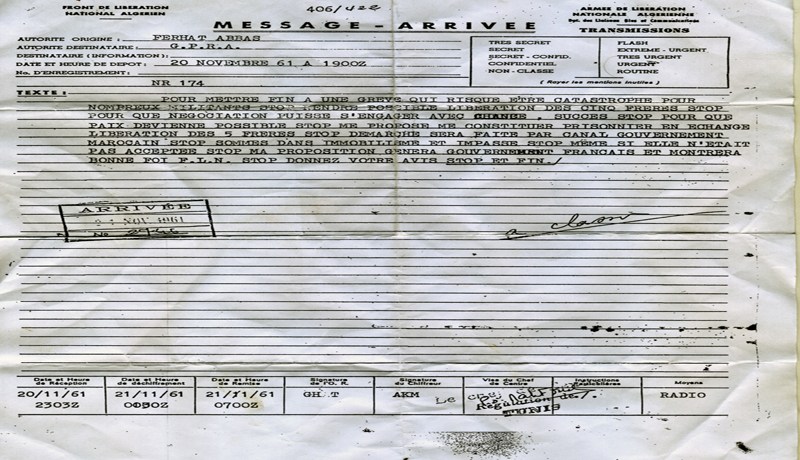 FRONT DE LIBERATION
NATIONAL ALGERIEN
406/422
ARMEE DE LIBERATION
NATIONALE ALGERIENNE
Dpt. des Liaisons Gles et Communications
MESSAGE - ARRIVEE
TRANSMISSIONS
AUTORITE ORIGINE : FERHAT ABBAS
AUTORITE DESTINATAIRE : G.P.R.A.
DESTINATAIRE (INFORMATION) :
DATE ET HEURE DE DEPOT : 20 NOVEMBRE 61 A 1900Z
No. D'ENREGISTREMENT :
NR 174
TRES SECRET FLASH
SECRET EXTREME - URGENT
SECRET - CONFID. TRES URGENT
CONFIDENTIEL URGENT
NON - CLASSE ROUTINE
( Rayer les mentions inutiles )
TEXTE :
POUR METTRE FIN A UNE GREVE QUI RISQUE ETRE CATASTROPHE POUR
NOMBREUX MILITANTS STOP RENDRE POSSIBLE LIBERATION DES CINQ FRERES STOP
POUR QUE NEGOCIATION PUISSE S'ENGAGER AVEC CHANCE , SUCCES STOP POUR QUE
PAIX DEVIENNE POSSIBLE STOP ME PROPOSE ME CONSTITUER PRISONNIER EN ECHANGE
LIBERATION DES 5 FRERES STOP DEMARCHE SERA FAITE PAR CANAL GOUVERNEMENT
MAROCAIN STOP SOMMES DANS IMMOBILISME ET IMPASSE STOP MÊME SI ELLE N'ETAIT
PAS ACCEPTEE STOP MA PROPOSITION GENERA GOUVERNEMENT FRANCAIS ET MONTRERA
BONNE FOI F.L.N. STOP DONNEZ VOTRE AVIS STOP ET FIN./
ARRIVÉE
NOV 1961
No
a classer
Date et Heure de Réception
Date et Heure de déchiffrement
Date et Heure de Remise
Signature de l'O. R.
Signature du Chiffreur
Visa du Chef de Centre
Instructions
Moyens
20/11/61 2303Z
21/11/61
21/11/61 0700Z
GH.T
AKM
Le
Régulation de
TUNIS
RADIO